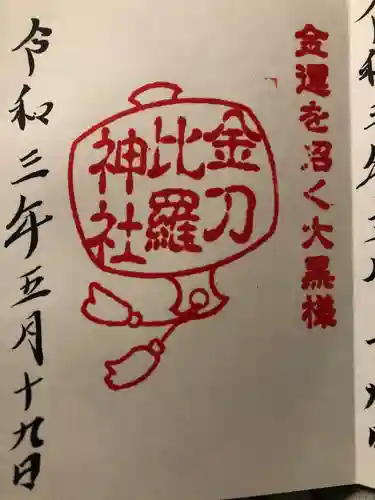 金運を招く大黒様
金刀
比羅
神社
令和三年五月十九日